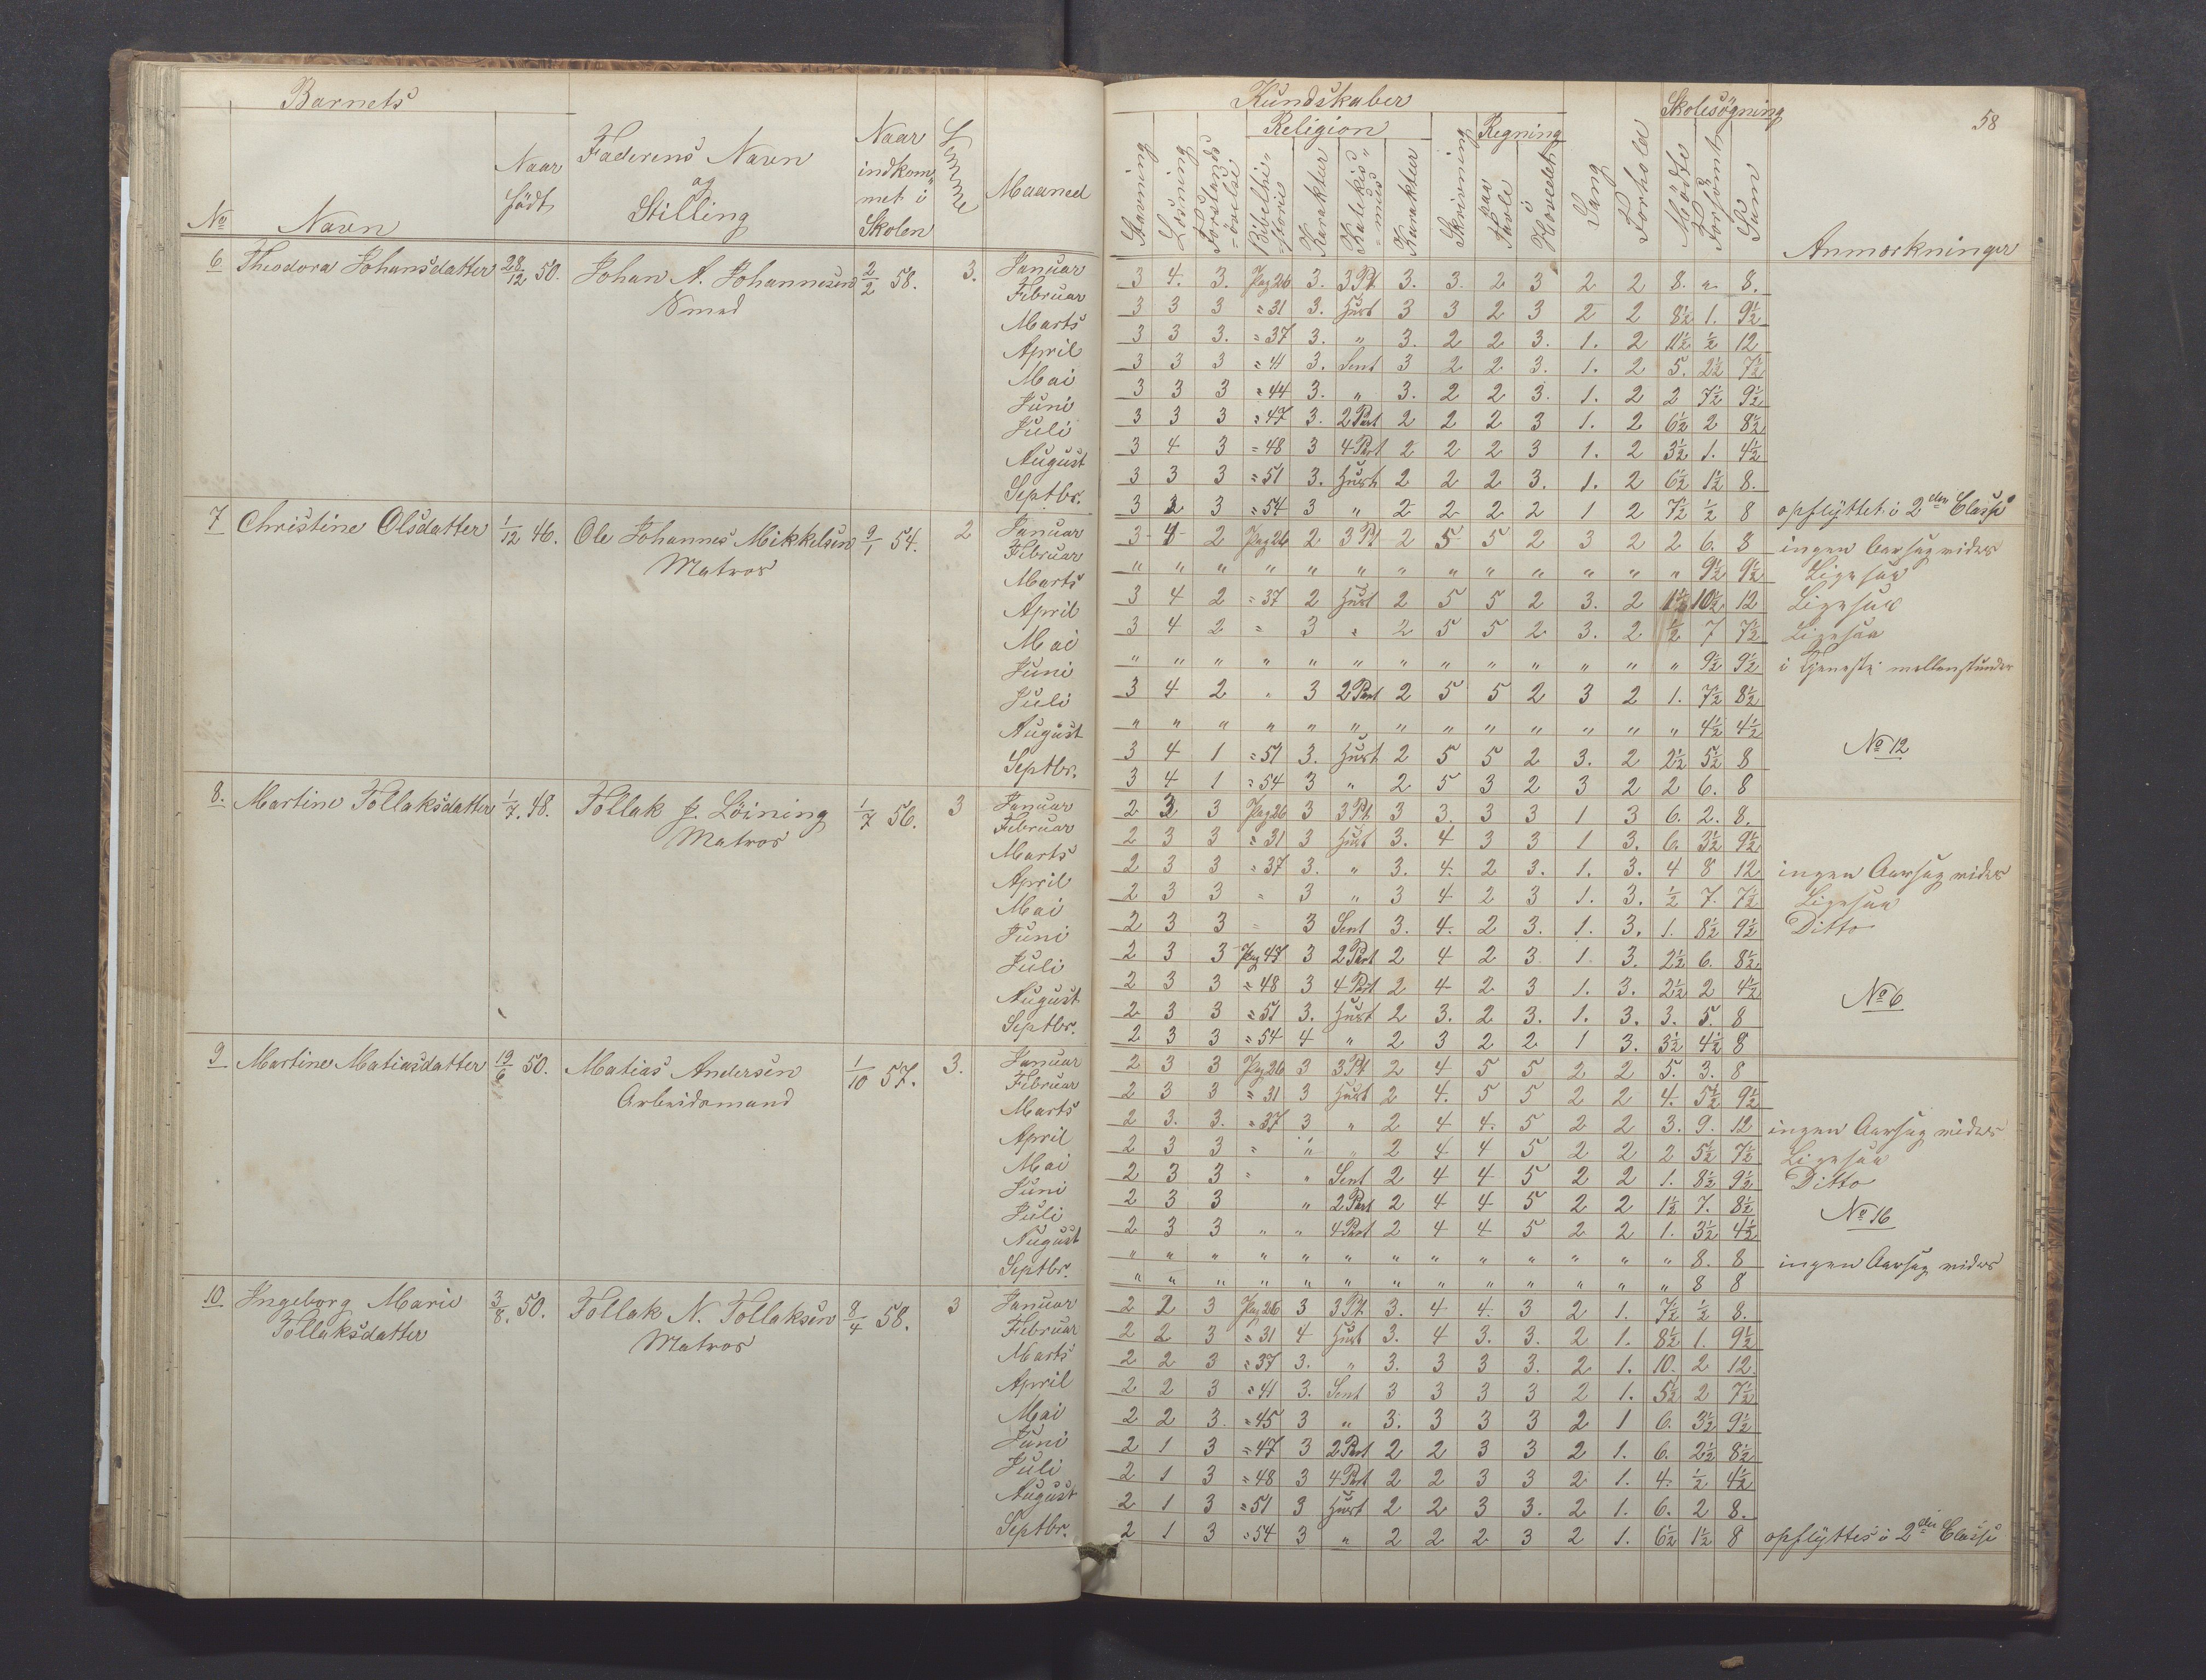 Barnets
Kundskaber
Skolesøgning
58
Religion
Regning
No
Navn
Naar født
Faderens Navn og Stilling
Naar indkommet i Skolen
Maaned
Stavning
Læsning
Forstandsøvelse
Bibelhistorie
Karakter
Katekismus
Karakter
Skrivning
paa Tavle
i Hovedet
Sang
Forhold
Mødte
Forsømt
Sum
Anmærkninger
6 Theodora Johansdatter 28/12 50. Johan A. Johannesen 2/2 58. 3.
Smed
Januar 3 4. 3. Pag 26 3. 3 Pt 3. 3. 2 3 2 2 8. " 8.
Februar 3 3 3 " 31 3. Hust 3 3 2 3 2 2 8½ 1. 9½
Marts 3 3 3. " 37 3. " 3. 2 2 3. 1. 2 11½ ½ 12
April 3 3 3 " 41 3. Sent 3 2 2 3. 1. 2 5. 2½ 7½
Mai 3 3 3 " 44 3. " 3. 2 2 3. 1. 2 2 7½ 9½
Juni 3 3 3 " 47 3. 2 Part 2 2 2 3 1. 2 6½ 2 8½
Juli 3 4 3 " 48 3 4 Part 2 2 2 3 1. 2 3½ 1. 4½
August 3 3 3 " 51 3. Hust 2 2 2 3. 1. 2 6½ 1½ 8.
Septbr. 3 2 3 " 54 3 " 2 2 2 2 1 2 7½ ½ 8 opflyttet i 2den Classe
7 Christine Olsdatter 1/12 46. Ole Johannes Mikkelsen 9/1 54. 2
Matros
Januar 3 4 2 Pag 26 2 3 Pt 2 5 5 2 3 2 2 6. 8 ingen Aarsag vides
Februar " " " " " " " " " " " " " 9½ 9½ Ligesaa
Marts 3 4 2 " 37 2 Hust 2 5 5 2 3. 2 1½ 10½ 12 Ligesaa
April 3 4 2 " 3 " 2 5 5 2 3. 2 ½ 7 7½ Ligesaa
Mai " " " " " " " " " " " " " 9½ 9½ i Tjeneste mellemstunder
Juni 3 4 2 " 3 2 Part 2 5 5 2 3 2 1. 7½ 8½
Juli " " " " " " " " " " " " " 4½ 4½
August 3 4 1 " 51 3. Hust 2 5 5 2 3. 2 2½ 5½ 8 No 12
Septbr. 3 4 1 " 54 3 " 2 5 3 2 3 2 2 6. 8
8. Martine Tollaksdatter 1/7. 48. Tollak J. Löining 1/7 56. 3
Matros
Januar 2 3 3 Pag 26 3 3 Pt 3 3. 3 3 1 3 6. 2. 8.
Februar 2 3 3 " 31 3 Hust 3. 4 3 3 1 3. 6. 3½ 9½
Marts 2 3 3 " 37 3. " 3. 4. 2 3. 1. 3. 4 8 12 ingen Aarsag vides
April 2 3 3 " 3 " 3 4 2 3 1. 3. ½ 7. 7½ Ligesaa
Mai 2 3 3 " 3 Sent 3. 4. 2 3. 1. 3. 1. 8½ 9½ Ditto
Juni 2 3 3 Pag 47 3 2 Part 2 4 2 3 1. 3. 2½ 6. 8½
Juli 2 3 3 " 48 3 4 Part 2 4 2 3 1. 3. 2½ 2 4½ No 6
August 2 3 3 " 51 3. Hust 2 3. 2 3. 1. 3. 3. 5. 8
Septbr. 2 3 3 " 54 4 " 2 3 2 2 1 3. 3½ 4½ 8
9 Martine Matiasdatter 19/6 50. Matias Andersen 1/10 57. 3.
Arbeidsmand
Januar 2 3 3 Pag 26 3 3 Pt 2 4 5 5 2 2 5. 3. 8
Februar 2 3 3 " 31 3 Hust 2 4. 5 5 2 2 4. 5½ 9½
Marts 2 3. 3. " 37 3 " 2 4 4. 5 2 2 3. 9. 12 ingen Aarsag vides
April 2 3 3 " " " 2 4 4 5 2 2 2 5½ 7½ Ligesaa
Mai 2 3 3 " " Sent 2 4 4 5 2 2 1. 8½ 9½ Ditto
Juni 2 3 3 " 2 Part 2 4 4 5 2 2 1½ 7. 8½ No 16
Juli 2 3 3 " " 4 Part 2 4 4 5 2 2 1. 3½ 4½
August " " " " " " " " " " " " " 8. 8 ingen Aarsag vides
Septbr. " " " " " " " " " " " " " 8 8
10 Ingeborg Marie 3/8. 50. Tollak N. Tollaksen 8/4 58. 3
Tollaksdatter Matros
Januar 2 2 3 Pag 26 3 3 Pt 3. 4 4. 3 2 1. 7½ ½ 8.
Februar 2 2 3 " 31 4 Hust 3. 4 3. 3. 2 1. 8½ 1. 9½
Marts 2 2 3 " 37 3. " 3. 3 3 3. 2 1. 10. 2 12.
April 2 2 3 " 41 3. Sent 3 3 3 3 2 1. 5½ 2 7½
Mai 2 2 3. " 45 3 " 3. 3 3 3 2 1 6. 3½ 9½
Juni 2 1 3 " 47 3 2 Part 2 2 3 3 2 1. 6. 2½ 8½
Juli 2 1 3 " 48 3 4 Part 2 2 3 3 2 1. 4. ½ 4½
August 2 1 3 " 51 3 Hust 2 2 3 3. 2 1. 6. 2 8.
Septbr. 2 1 3 " 54 3 " 2 2 2 3 2 1. 6½ 1½ 8 opflyttes i 2den Classe